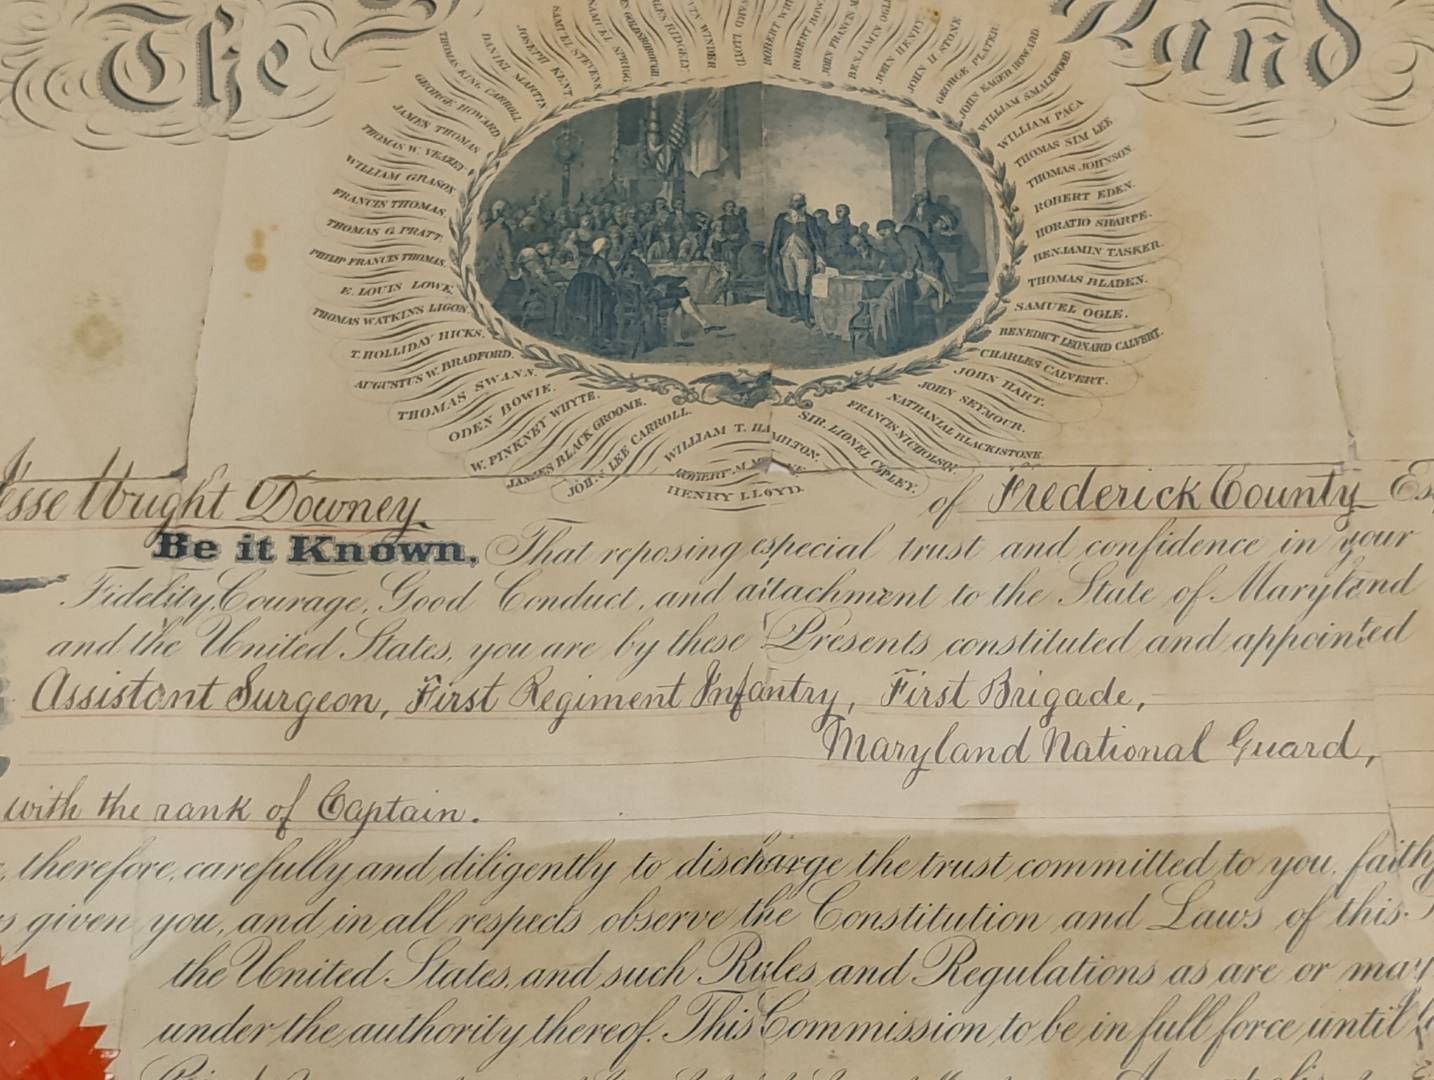 The Land
THOMAS KING CARROLL
DANIEL MARTIN
JOSEPH KENT
SAMUEL STEVENS
SAMUEL SPRIGG
LLOYD
BENJAMIN OGLE
JOHN HENRY
JOHN H STONE
GEORGE PLATER
JOHN EAGER HOWARD
WILLIAM SMALLWOOD
WILLIAM PACA
THOMAS SIM LEE
THOMAS JOHNSON.
ROBERT EDEN.
HORATIO SHARPE.
BENJAMIN TASKER.
THOMAS BLADEN.
SAMUEL OGLE.
BENEDICT LEONARD CALVERT.
CHARLES CALVERT.
JOHN HART.
JOHN SEYMOUR.
NATHANIAL BLACKISTONE
FRANCIS NICHOLSON
SIR. LIONEL COPLEY.
GEORGE HOWARD
JAMES THOMAS
THOMAS W. VEAZEY
WILLIAM GRASON
FRANCIS THOMAS.
THOMAS G. PRATT.
PHILIP FRANCIS THOMAS.
E. LOUIS LOWE
THOMAS WATKINS LIGON
T. HOLLIDAY HICKS.
AUGUSTUS W. BRADFORD.
THOMAS SWANN.
ODEN BOWIE.
W. PINKNEY WHYTE.
JAMES BLACK GROOME.
JOHN LEE CARROLL.
WILLIAM T. HAMILTON.
HENRY LLOYD.
esse Wright Downey of Frederick County Es
Be it Known, That reposing especial trust and confidence in your
Fidelity, Courage, Good Conduct, and attachment to the State of Maryland
and the United States, you are by these Presents constituted and appointed
Assistant Surgeon, First Regiment Infantry, First Brigade,
Maryland National Guard,
with the rank of Captain.
therefore, carefully and diligently to discharge the trust committed to you, faith
s given you, and in all respects observe the Constitution and Laws of this
the United States, and such Rules and Regulations as are or may
under the authority thereof. This Commission to be in full force until